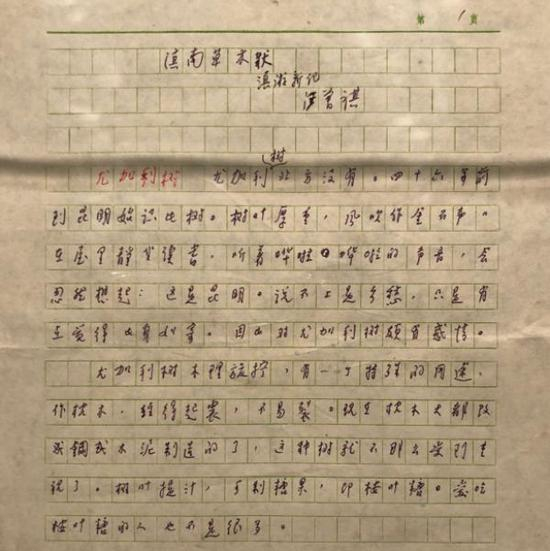 第 1 页
滇南草木状
滇游新记
汪曾祺
尤加利树 尤加利树北方没有。四十六年前
到昆明始识此树。树叶厚重，风吹作金石声。
在屋里静坐读书，听着哗啦哗啦的声音，会
忽然想起：这是昆明。说不上是乡愁，只是有
点觉得此身如寄。因此对尤加利树颇有感情。
尤加利树木理旋拧，有一个特殊的用途，
作枕木，经得起震，不易裂。现在枕木大都改
成钢或水泥制造的了，这种树就不那么受到重
视了。树叶提汁，可制糖果，即桉叶糖。爱吃
桉叶糖的人也不是很多。